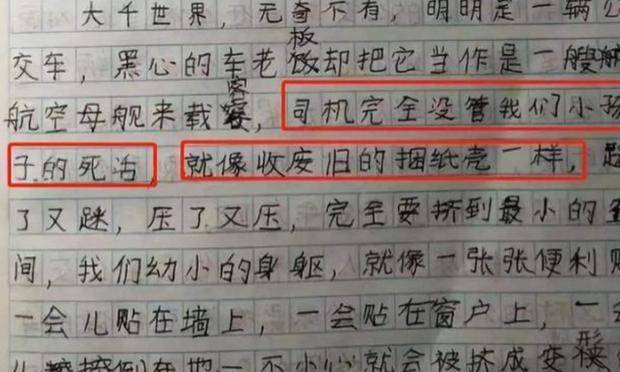 大千世界，无奇不有，明明是一辆公
交车，黑心的车老板却把它当作是一艘
航空母舰来载客，司机完全没管我们小孩
子的死活，就像收废旧的捆纸壳一样，
了又踩，压了又压，完全要挤到最小的
间，我们幼小的身躯，就像一张张便利贴
一会儿贴在墙上，一会贴在窗户上，一
一不小心就会被挤成变形